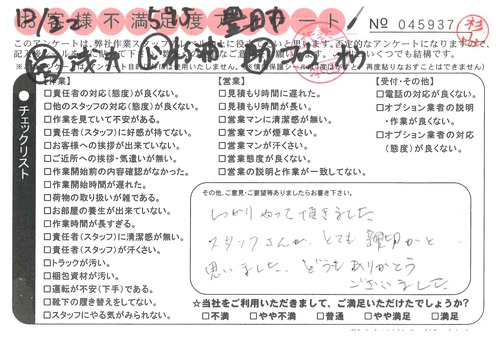 お客様不満足度アンケート
No 045937
このアンケートは、弊社作業スタッフ
■チェックリスト
【作業】
□責任者の対応(態度)が良くない。
□他のスタッフの対応(態度)が良くない。
□作業を見ていて不安がある。
□責任者(スタッフ)に好感が持てない。
□お客様への挨拶が出来ていない。
□ご近所への挨拶・気遣いが無い。
□作業開始前の内容確認がなかった。
□作業開始時間が遅れた。
□荷物の取り扱いが雑である。
□お部屋の養生が出来ていない。
□作業時間が長すぎる。
□責任者(スタッフ)に清潔感が無い。
□責任者(スタッフ)が汗くさい。
□トラックが汚い。
□梱包資材が汚い。
□運転が不安(下手)である。
□靴下の履き替えをしてない。
□スタッフにやる気がみられない。
【営業】
□見積もり時間に遅れた。
□見積もり時間が長い。
□営業マンに清潔感が無い。
□営業マンが煙草くさい。
□営業マンが汗くさい。
□営業態度が良くない。
□営業の説明と作業が一致してない。
【受付・その他】
□電話の対応が良くない。
□オプション業者の説明
・作業が良くない。
□オプション業者の対応
(態度)が良くない。
その他、ご意見・ご要望等ありましたらお書き下さい。
しっかりやって頂きました
スタッフさんが、とても親切かと
思いました。どうもありがとう
ございました
☆当社をご利用いただきまして、ご満足いただけたでしょうか?
□不満 □やや不満 □普通 □やや満足 □満足